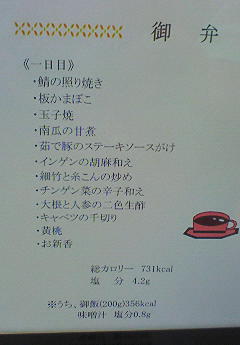 御弁
《一日目》
・鯖の照り焼き
・板かまぼこ
・玉子焼
・南瓜の甘煮
・茹で豚のステーキソースがけ
・インゲンの胡麻和え
・細竹と糸こんの炒め
・チンゲン菜の辛子和え
・大根と人参の二色生酢
・キャベツの千切り
・黄桃
・お新香
総カロリー 731kcal
塩 分 4.2g
※うち、御飯(200g)356kcal
味噌汁 塩分0.8g